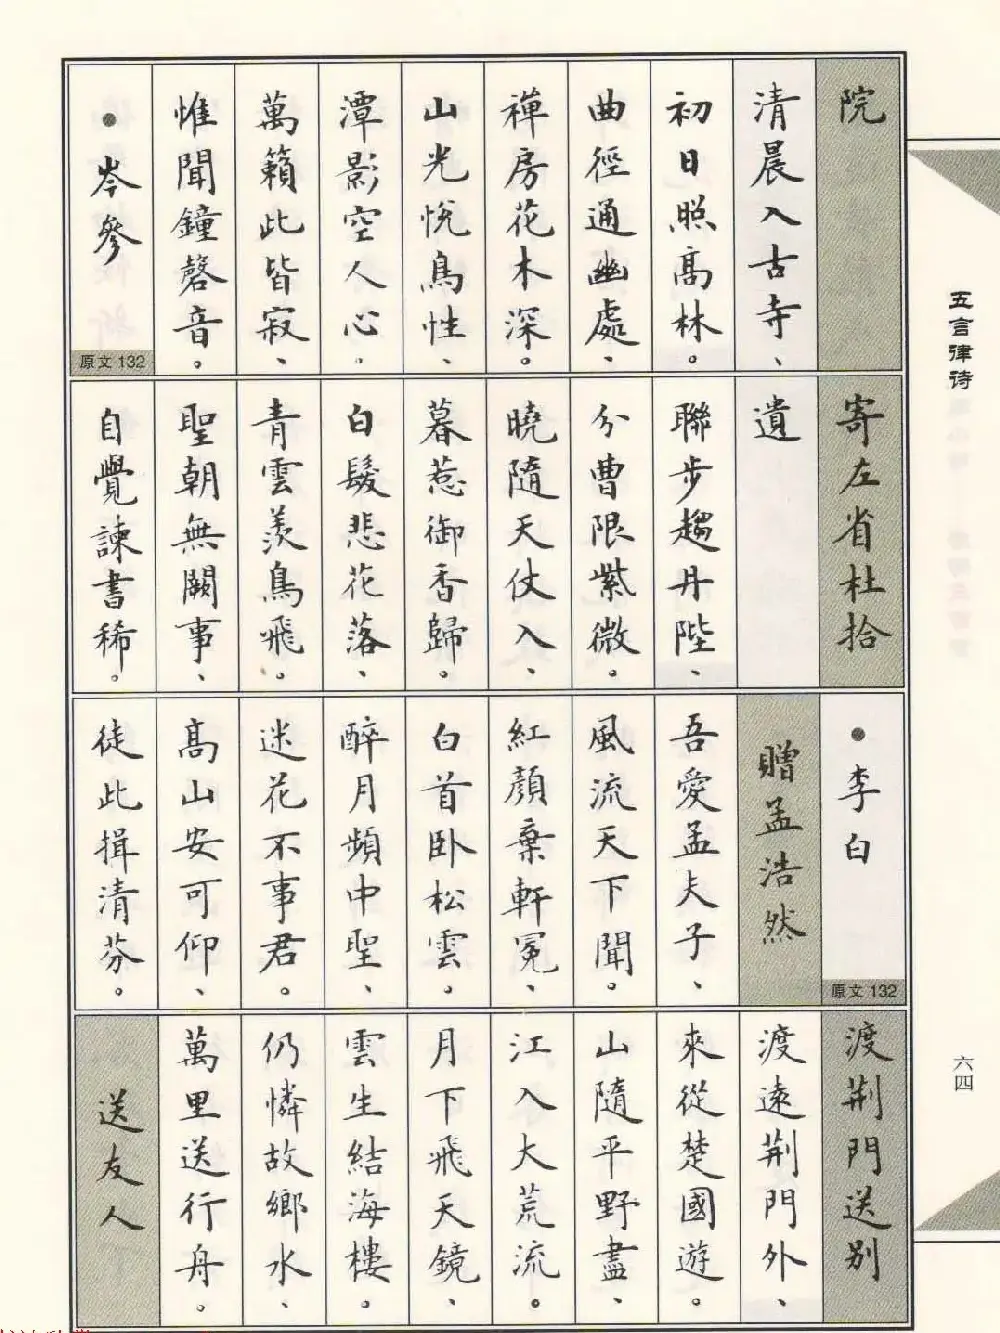 院
清晨入古寺、
初日照高林。
曲徑通幽處、
禅房花木深。
山光悅鳥性、
潭影空人心。
萬籟此皆寂、
惟聞鐘磬音。
•岑參
原文132
寄左省杜拾
遺
聯步趨丹陛、
分曹限紫微。
曉隨天仗入、
暮惹御香歸。
白髮悲花落、
青雲羨鳥飛。
聖朝無闕事、
自覺諫書稀。
•李白
原文132
贈孟浩然
吾愛孟夫子、
風流天下聞。
紅顏棄軒冕、
白首卧松雲。
醉月頻中聖、
迷花不事君。
高山安可仰、
徒此揖清芬。
渡荆門送别
渡遠荆門外、
來從楚國遊。
山隨平野盡、
江入大荒流。
月下飛天鏡、
雲生結海樓。
仍憐故鄉水、
萬里送行舟。
送友人
五言律诗
六四